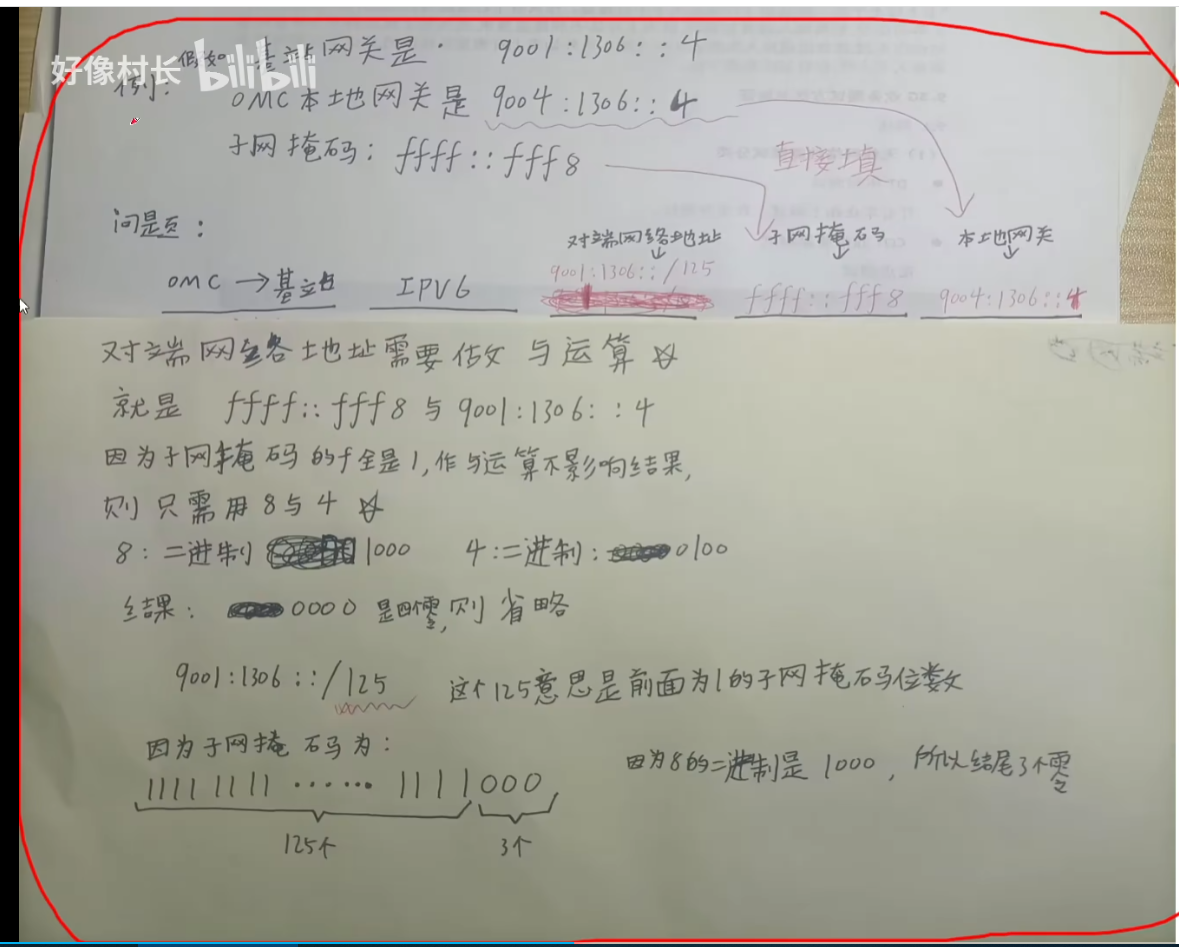 好像村长 bilibili
假如 基站网关是. 9001:1306::4
例: OMC本地网关是 9004:1306::4
子网掩码: ffff::fff8
直接填
问题页:
对端网络地址 子网掩码 本地网关
OMC→基站 IPV6 9001:1306::/125 ffff::fff8 9004:1306::4
对端网络地址需要做 与运算
就是 ffff::fff8 与 9001:1306::4
因为子网掩码的f全是1,作与运算不影响结果,
则只需用8与4
8:二进制 1000 4:二进制: 0100
结果: 0000 是四个零,则 省略
9001:1306::/125 这个125意思是前面为1的子网掩码位数
因为子网掩码为:
1111 1111 ...... 1111 1000
125个 3个
因为8的二进制是 1000, 所以结尾3个零